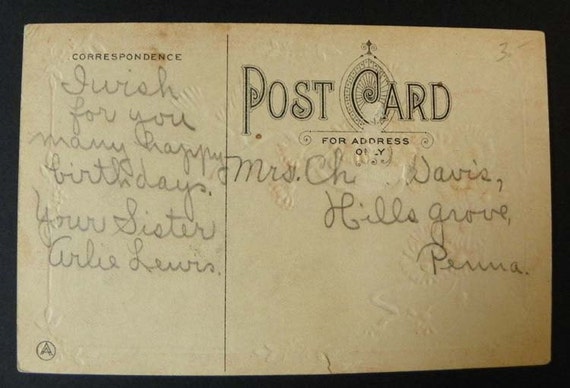 CORRESPONDENCE
I wish
for you
many happy
birthdays.
Your Sister
Arlie Lewis.
POST CARD
FOR ADDRESS
ONLY
Mrs. Ch Davis,
Hills grove,
Penna.
3-
A